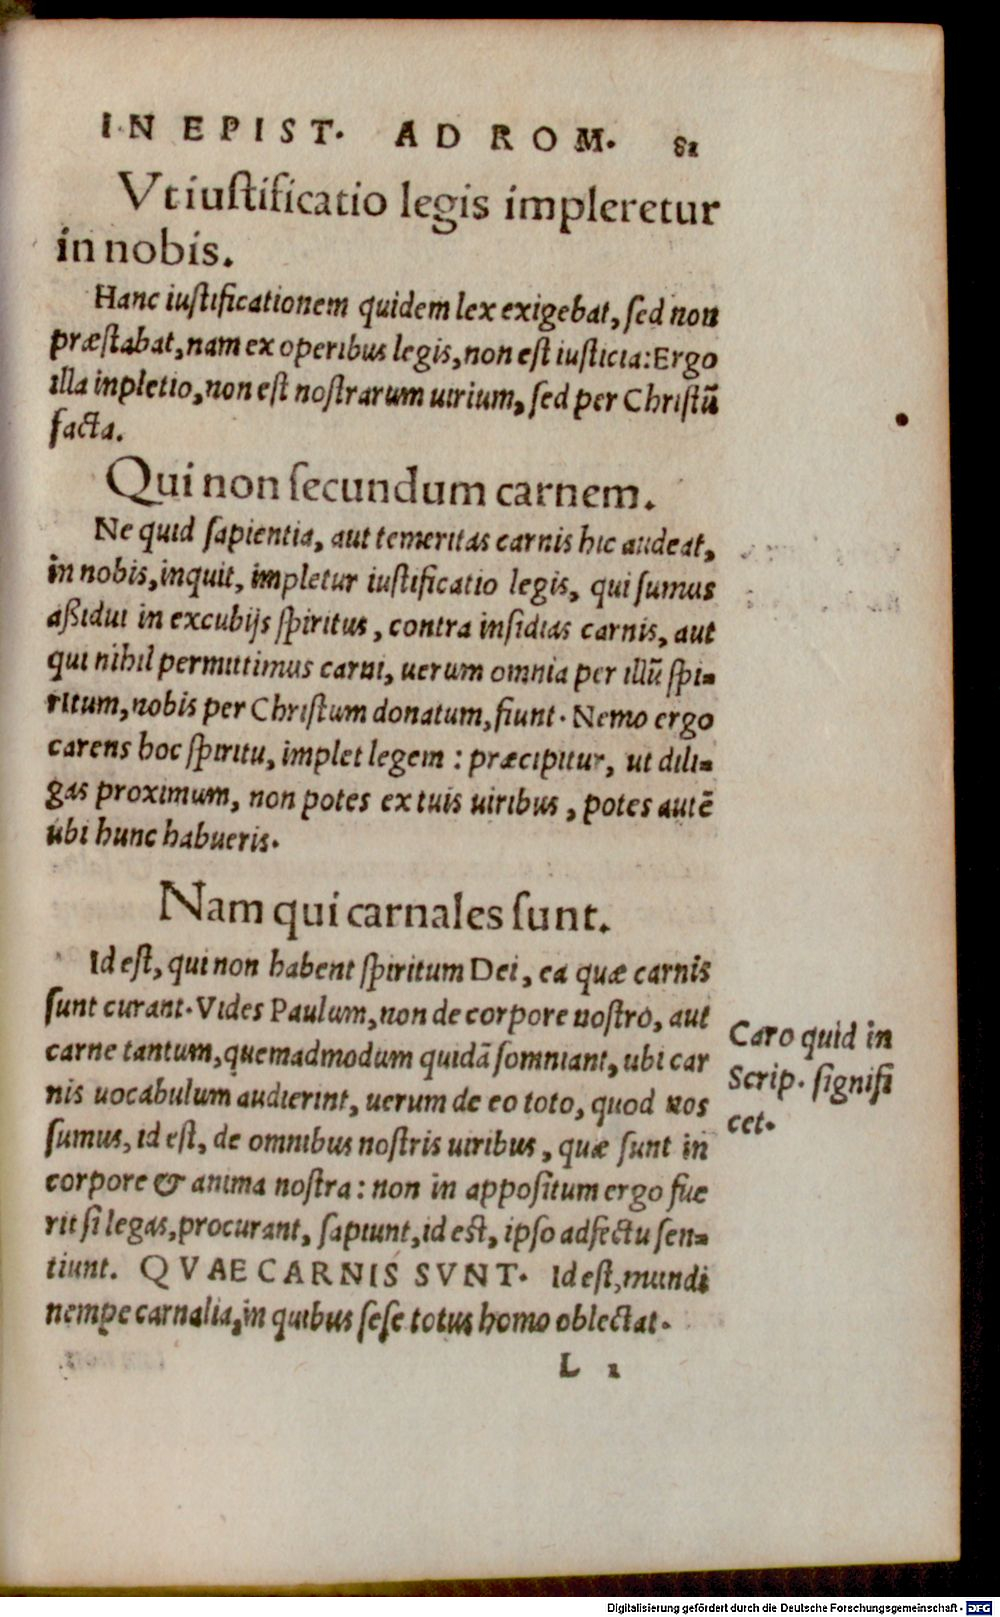 IN EPIST. AD ROM. 81
Vt iuſtificatio legis impleretur
in nobis.
Hanc iuſtificationem quidem lex exigebat, ſed non
præſtabat, nam ex operibus legis, non eſt iuſticia: Ergo
illa inpletio, non eſt noſtrarum uirium, ſed per Chriſtũ
facta.
Qui non ſecundum carnem.
Ne quid ſapientia, aut temeritas carnis hic audeat,
in nobis, inquit, impletur iuſtificatio legis, qui ſumus
aßidui in excubijs ſpiritus, contra inſidias carnis, aut
qui nihil permittimus carni, uerum omnia per illũ ſpi-
ritum, nobis per Chriſtum donatum, fiunt. Nemo ergo
carens hoc ſpiritu, implet legem: præcipitur, ut dili-
gas proximum, non potes ex tuis uiribus, potes autẽ
ubi hunc habueris.
Nam qui carnales ſunt.
Id eſt, qui non habent ſpiritum Dei, ea quæ carnis
ſunt curant. Vides Paulum, non de corpore noſtro, aut
carne tantum, quemadmodum quidã ſomniant, ubi car
nis uocabulum audierint, uerum de eo toto, quod nos
ſumus, id eſt, de omnibus noſtris uiribus, quæ ſunt in
corpore & anima noſtra: non in appoſitum ergo fue
rit ſi legas, procurant, ſapiunt, id eſt, ipſo adfectu ſen-
tiunt. QVAE CARNIS SVNT. Id eſt, mundi
nempe carnalia, in quibus ſeſe totus homo oblectat.
L 1
Caro quid in
Scrip. ſignifi
cet.
Digitalisierung gefördert durch die Deutsche Forschungsgemeinschaft - DFG